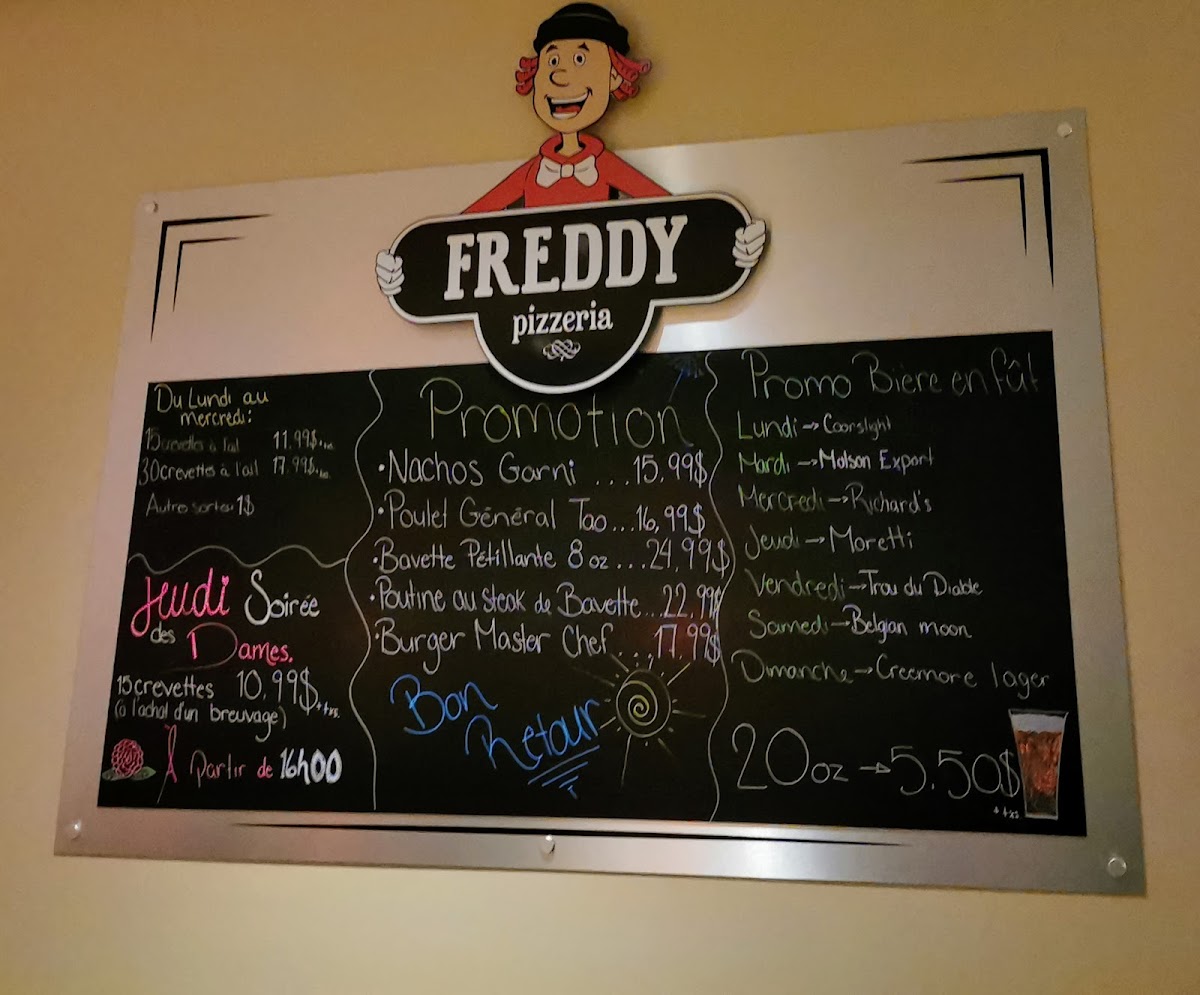 FREDDY
pizzeria
Du Lundi au
mercredi:
15 crevettes à l'ail 11.99$
30 crevettes à l'ail 17.99$
Autres sortes 1$
Jeudi Soirée
des Dames.
15 crevettes 10.99$ + txs.
(à l'achat d'un breuvage)
À Partir de 16h00
Promotion
• Nachos Garni ... 15,99$
• Poulet Général Tao ... 16,99$
• Bavette Pétillante 8 oz ... 24,99$
• Poutine au steak de Bavette ... 22,99$
• Burger Master Chef ... 17,99$
Bon
Retour
Promo Bière en fût
Lundi → Coorslight
Mardi → Molson Export
Mercredi → Richard's
Jeudi → Moretti
Vendredi → Trou du Diable
Samedi → Belgian moon
Dimanche → Creemore lager
20 oz → 5.50$
+ txs